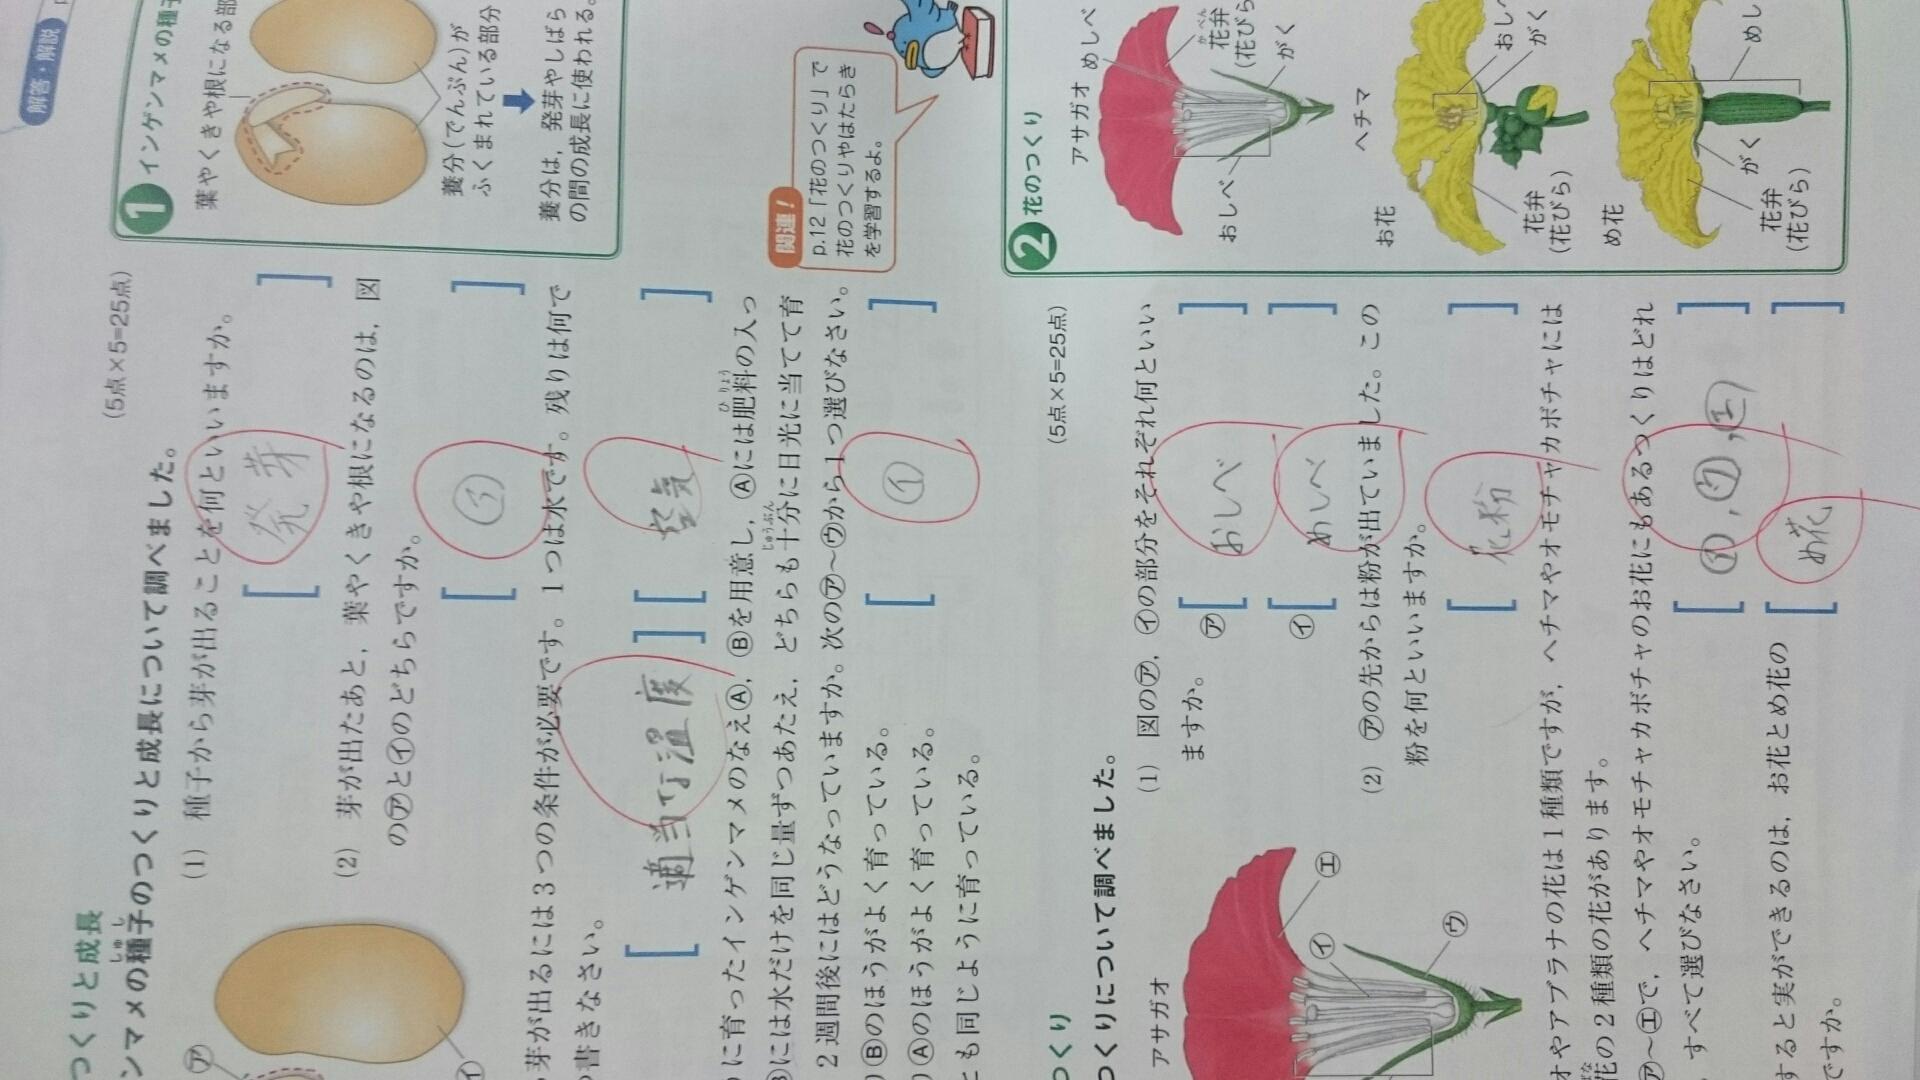 解答・解説
つくりと成長
ンマメの種子のつくりと成長について調べました。
しゅし
(5点×5=25点)
(1) 種子から芽が出ることを何といいますか。
[ 発芽 ]
(2) 芽が出たあと，葉やくきや根になるのは，図
の㋐と㋑のどちらですか。
[ ㋐ ]
芽が出るには3つの条件が必要です。1つは水です。残りは何で
書きなさい。
[ 適当な温度 ] [ 空気 ]
に育ったインゲンマメのなえⒶ，Ⓑを用意し，Ⓐには肥料の入っ
ひりょう
には水だけを同じ量ずつあたえ，どちらも十分に日光に当てて育
じゅうぶん
2週間後にはどうなっていますか。次の㋐～㋒から1つ選びなさい。
Ⓑのほうがよく育っている。
[ ㋑ ]
Ⓐのほうがよく育っている。
も同じように育っている。
㋐
㋑
1 インゲンマメの種子
葉やくきや根になる部
養分(でんぷん)が
ふくまれている部分
養分は，発芽やしばら
の間の成長に使われる。
関連！
p.12「花のつくり」で
花のつくりやはたらき
を学習するよ。
つくり
つくりについて調べました。
(5点×5=25点)
アサガオ
㋑
㋒
㋓
(1) 図の㋐，㋑の部分をそれぞれ何といい
ますか。
㋐[ おしべ ]
㋑[ めしべ ]
(2) ㋐の先からは粉が出ていました。この
粉を何といいますか。
[ 花粉 ]
オやアブラナの花は1種類ですが，ヘチマやオモチャカボチャには
花の2種類の花があります。
㋐～㋓で，ヘチマやオモチャカボチャのお花にもあるつくりはどれ
すべて選びなさい。
[ ㋑, ㋒, ㋓ ]
すると実ができるのは，お花とめ花の
ですか。
[ め花 ]
2 花のつくり
アサガオ
めしべ
花弁
かべん
(花びら
がく
おしべ
ヘチマ
お花
おしべ
がく
花弁
(花びら)
め花
めし
がく
花弁
(花びら)